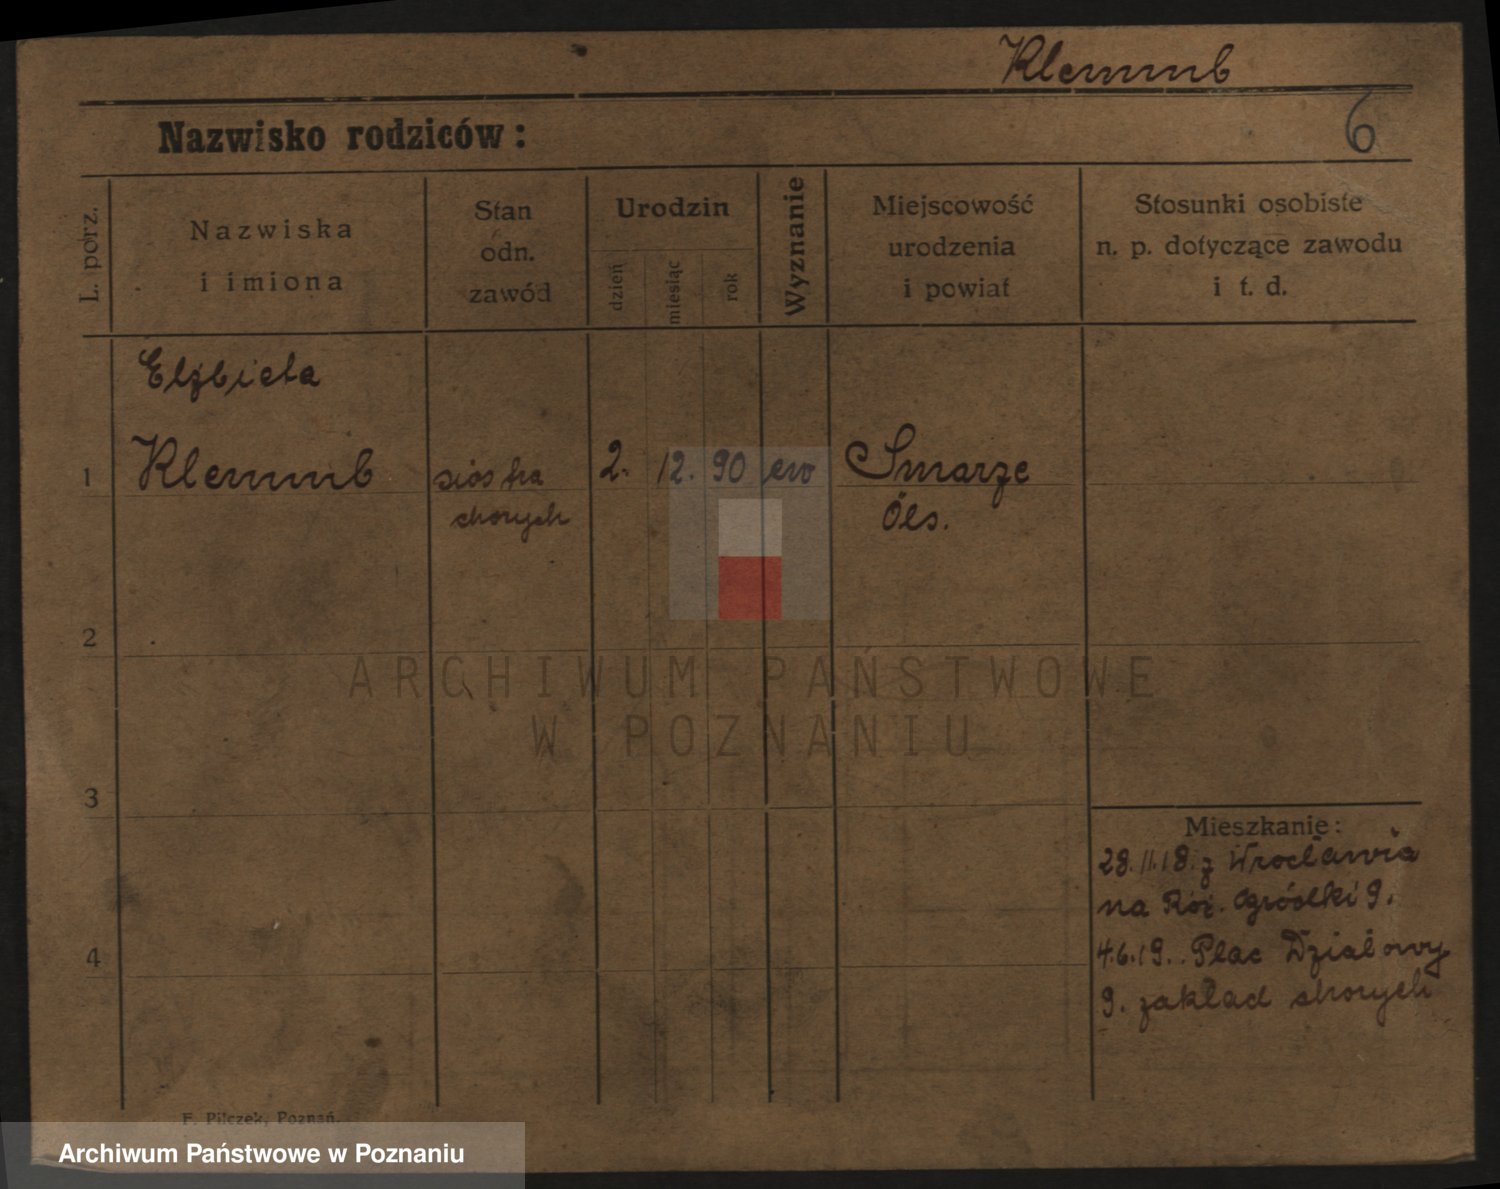 Klemmb
Nazwisko rodziców:
6
L. porz.
Nazwiska
i imiona
Stan
odn.
zawód
Urodzin
dzień
miesiąc
rok
Wyznanie
Miejscowość
urodzenia
i powiat
Stosunki osobiste
n. p. dotyczące zawodu
i t. d.
Elżbieta
1 Klemmb siostra 2. 12. 90 ew Smarze
chorych Öls.
2
3
4
Mieszkanie:
28.11.18. z Wrocławia
na Róż. Ogródki 9.
4.6.19. Plac Działowy
9. zakład chorych
F. Pilczek, Poznań.
ARCHIWUM PAŃSTWOWE
W POZNANIU
Archiwum Państwowe w Poznaniu